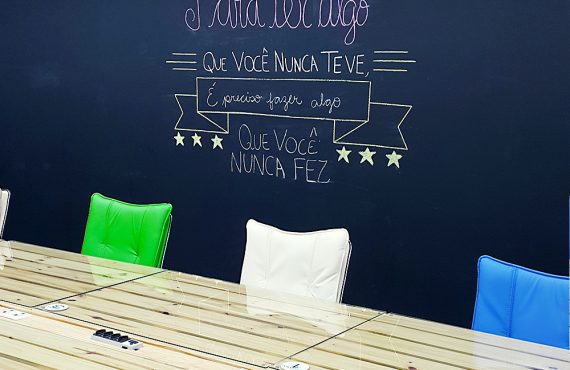 Para ter algo
QUE VOCÊ NUNCA TEVE,
É preciso fazer algo
QUE VOCÊ
NUNCA FEZ